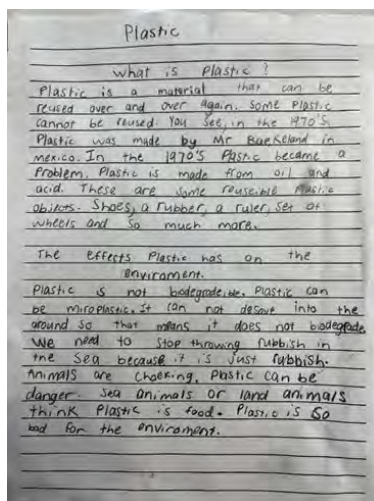 Plastic
What is Plastic ?
Plastic is a material that can be
reused over and over again. Some Plastic
cannot be reused. You see, in the 1970's
Plastic was made by Mr Baekeland in
mexico. In the 1970's Plastic became a
Problem. Plastic is made from oil and
acid. These are some reuseible Plastic
objects. Shoes, a rubber, a ruler, set of
wheels and so much more.
The effects Plastic has on the
enviroment.
Plastic is not biodegradeible. Plastic can
be miroplastic. It can not desolve into the
ground so that means it does not biodegrade
We need to stop throwing rubbish in
the sea because it is just rubbish.
Animals are choeking, Plastic can be
danger. Sea animals or land animals
think Plastic is food. Plastic is so
bad for the enviroment.